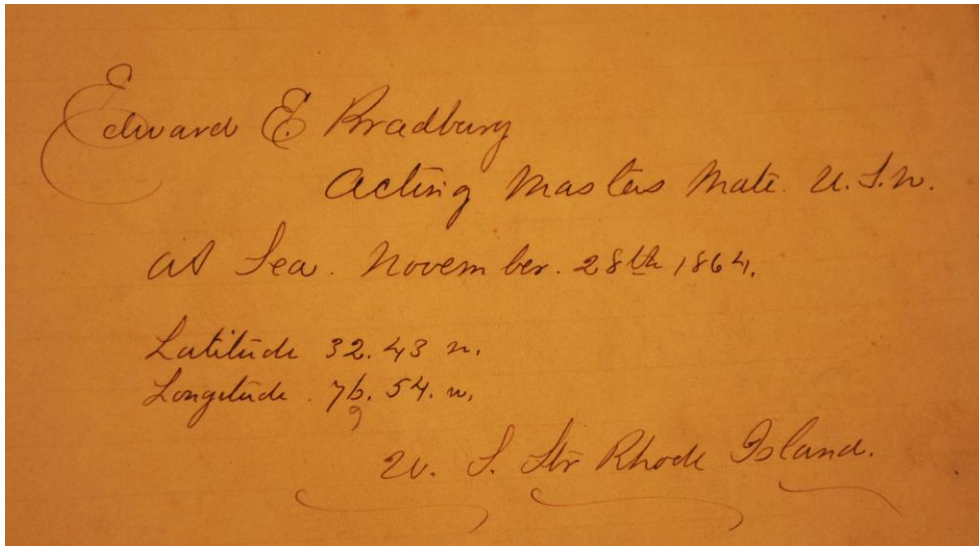 Edward E. Bradbury
Acting Masters Mate. U.S.N.
at Sea. November. 28th 1864.
Latitude 32.43 n.
Longitude. 76.54. w.
U. S. Str Rhode Island.